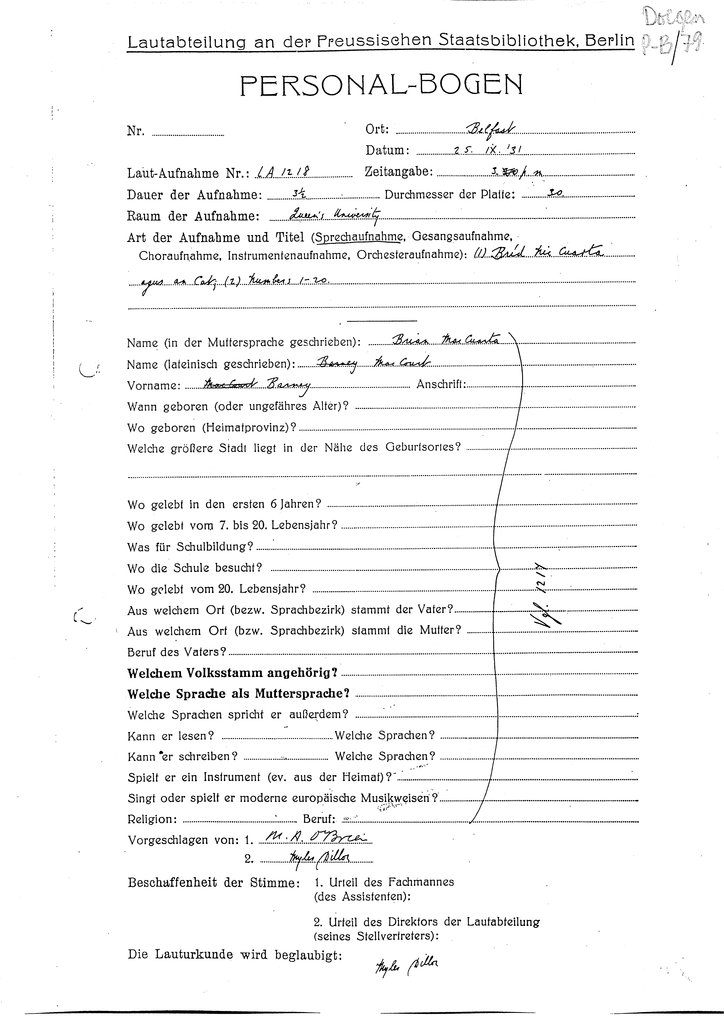 Doegen
P-B/79
Lautabteilung an der Preussischen Staatsbibliothek, Berlin
PERSONAL-BOGEN
Nr. Ort: Belfast
Datum: 25. IX. '31
Laut-Aufnahme Nr.: LA 1218 Zeitangabe: 3. p.m
Dauer der Aufnahme: 3½ Durchmesser der Platte: 30.
Raum der Aufnahme: Queen's University
Art der Aufnahme und Titel (Sprechaufnahme, Gesangsaufnahme,
Choraufnahme, Instrumentenaufnahme, Orchesteraufnahme): (1) Cuarta
agus an Cat; (2) Numbers 1-20.
Name (in der Muttersprache geschrieben): Brian Mac Cuarta
Name (lateinisch geschrieben): Barney Mac Court
Vorname: MacCourt Barney Anschrift:
Wann geboren (oder ungefähres Alter)?
Wo geboren (Heimatprovinz)?
Welche größere Stadt liegt in der Nähe des Geburtsortes?
Wo gelebt in den ersten 6 Jahren?
Wo gelebt vom 7. bis 20. Lebensjahr?
Was für Schulbildung?
Wo die Schule besucht?
Wo gelebt vom 20. Lebensjahr?
Vgl. 1217
Aus welchem Ort (bezw. Sprachbezirk) stammt der Vater?
Aus welchem Ort (bzw. Sprachbezirk) stammt die Mutter?
Beruf des Vaters?
Welchem Volksstamm angehörig?
Welche Sprache als Muttersprache?
Welche Sprachen spricht er außerdem?
Kann er lesen? Welche Sprachen?
Kann er schreiben? Welche Sprachen?
Spielt er ein Instrument (ev. aus der Heimat)?
Singt oder spielt er moderne europäische Musikweisen?
Religion: Beruf:
Vorgeschlagen von: 1. M. A. O'Brien
2. Myles Dillon
Beschaffenheit der Stimme: 1. Urteil des Fachmannes
(des Assistenten):
2. Urteil des Direktors der Lautabteilung
(seines Stellvertreters):
Die Lauturkunde wird beglaubigt:
Myles Dillon